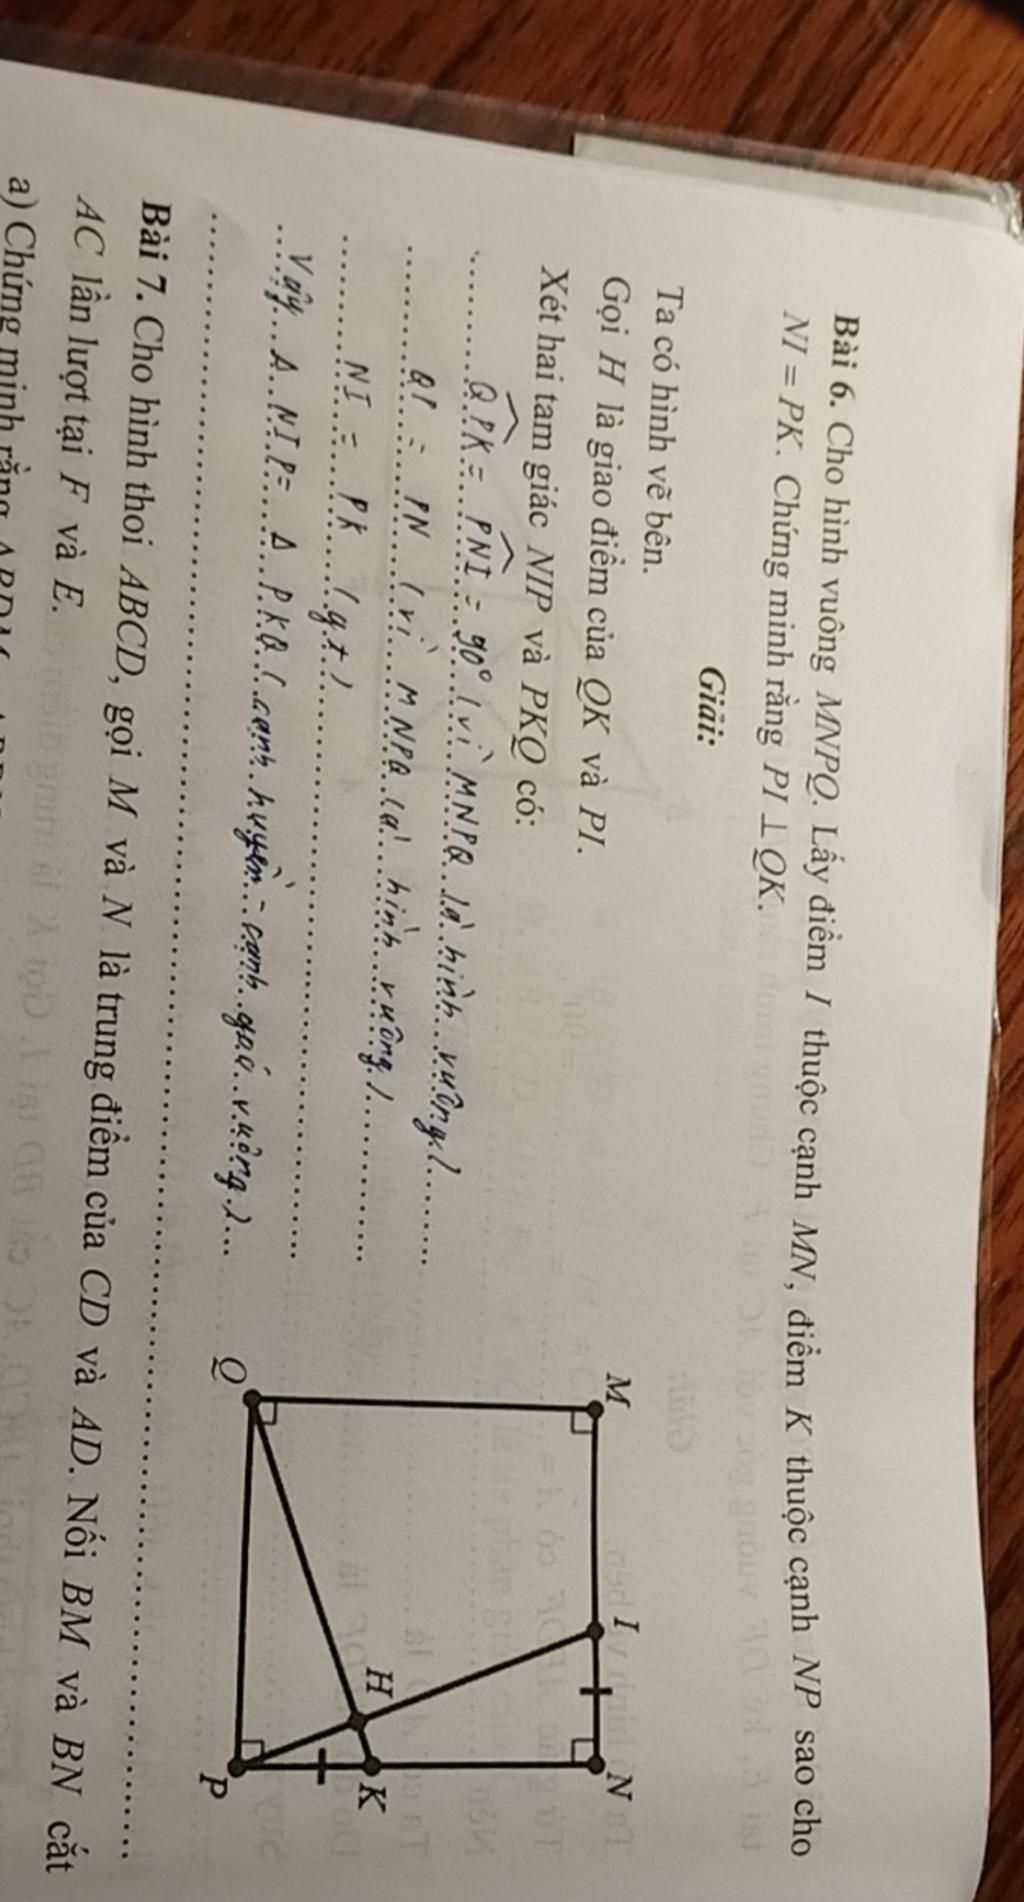 Bài 6. Cho hình vuông MNPQ. Lấy điểm I thuộc cạnh MN, điểm K thuộc cạnh NP sao cho
NI = PK. Chứng minh rằng PI ⊥ QK.
Giải:
Ta có hình vẽ bên.
Gọi H là giao điểm của QK và PI.
Xét hai tam giác NIP và PKQ có:
QPK = PNI = 90° (vì MNPQ là hình vuông)
QP = PN (vì MNPQ là hình vuông)
NI = PK (gt)
Vậy Δ NIP = Δ PKQ (cạnh huyền - cạnh goá vuông)
M
I
N
H
K
Q
P
Bài 7. Cho hình thoi ABCD, gọi M và N là trung điểm của CD và AD. Nối BM và BN cắt
AC lần lượt tại F và E.
a) Chứng minh rằng